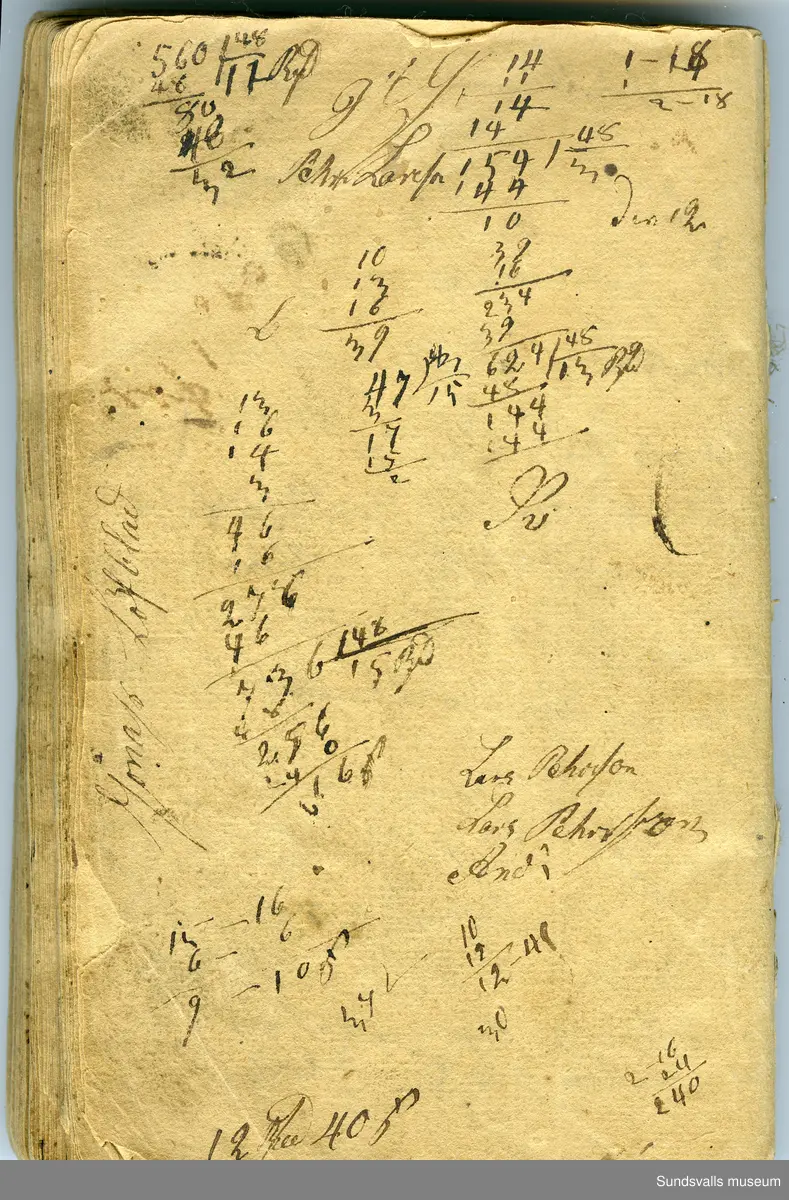 560 | 48
48 | 11 Rd
80
48
32
14
11
14
14
154 | 48
144 | 3
10
1 - 18
1
2 - 18
Pehr Larson
den 12
10
13
16
39
39
16
234
39
624 | 48
48 | 13 Rd
144
144
47 | 3
3 | 15
17
15
2
13
16
14
3
46
16
276
46
736 | 48
15 Rd
48
256
240
16 ß
Jonass Löfblad
Lars Pehrson
Lars Pehrsson
And
15 - 16
6 - 6
9 - 10 ß
10
12
12 - 48
30
34
2 - 16
24
240
12 Rd 40 ß
Sundsvalls museum